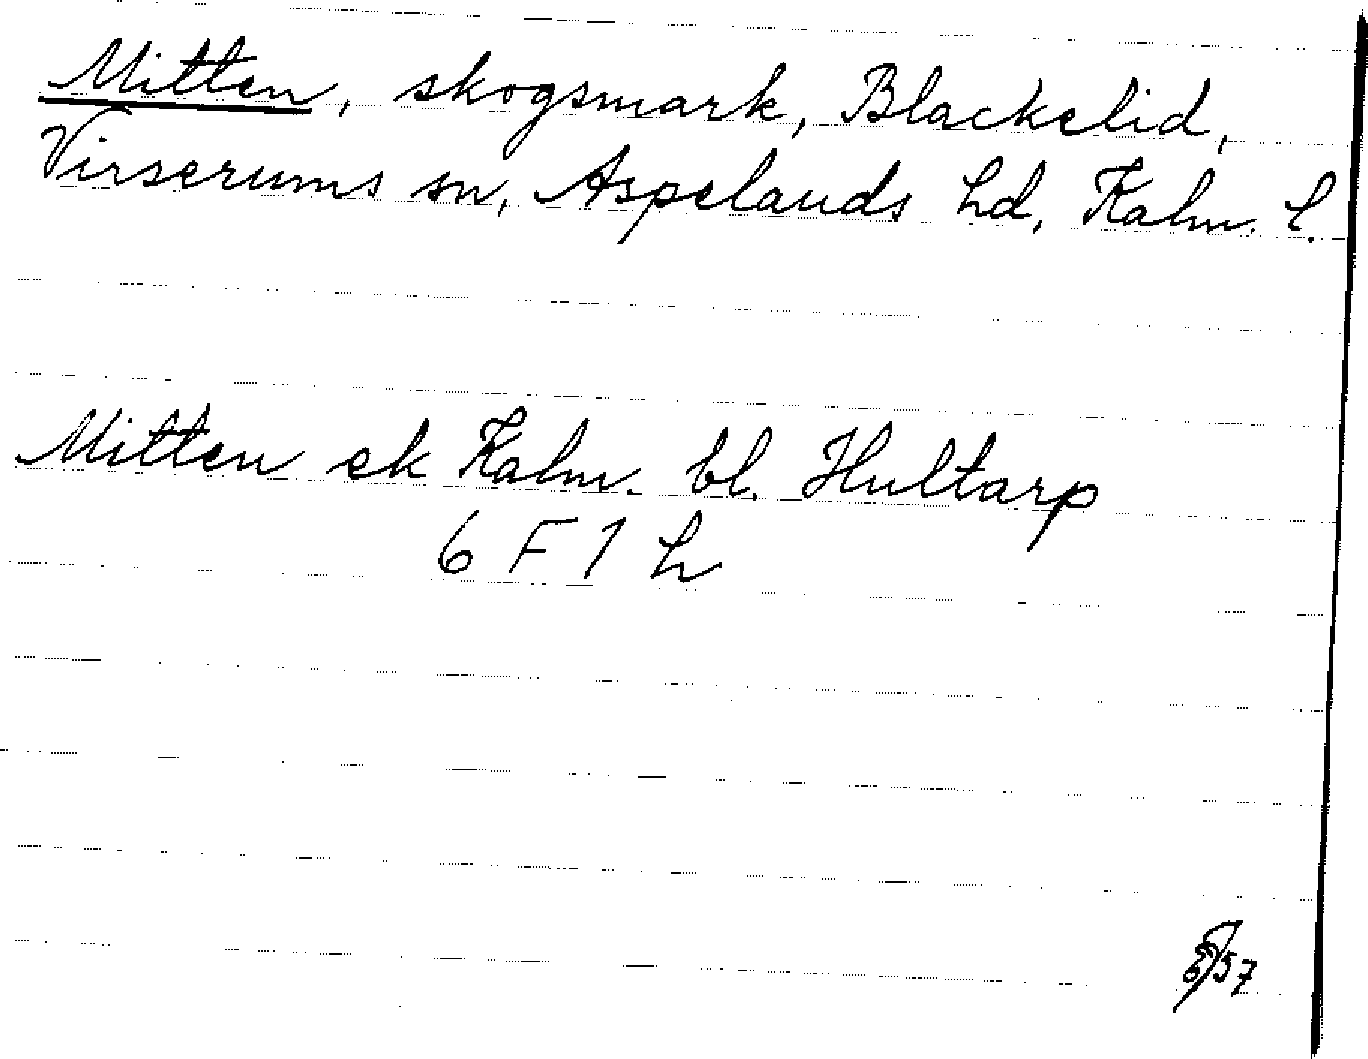 Mitten, skogsmark, Blackelid,
Virserums sn, Aspelands hd, Kalm. l.
Mitten ek Kalm. bl. Hultarp
6 F 1 h
57